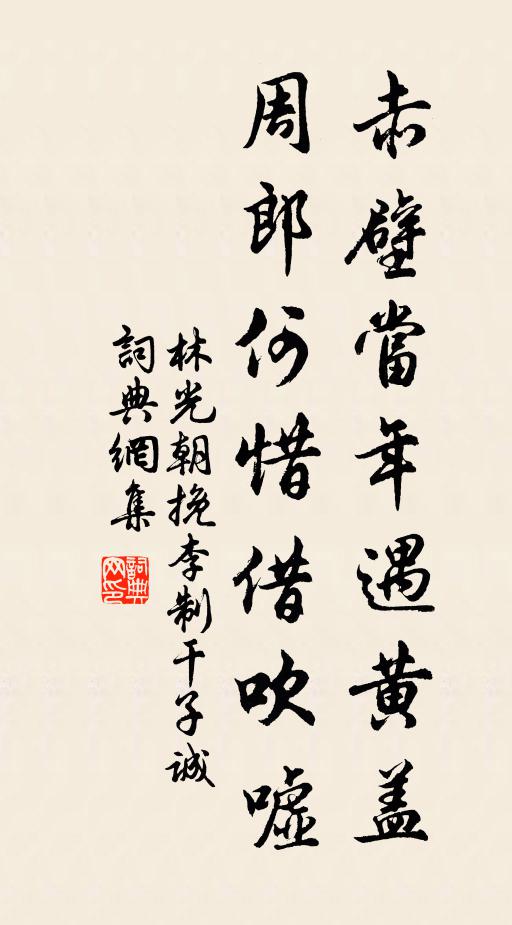 赤壁當年遇黃蓋
周郎何惜借吹噓
林光朝挽李制干子誠
詞典網集
詞典网印